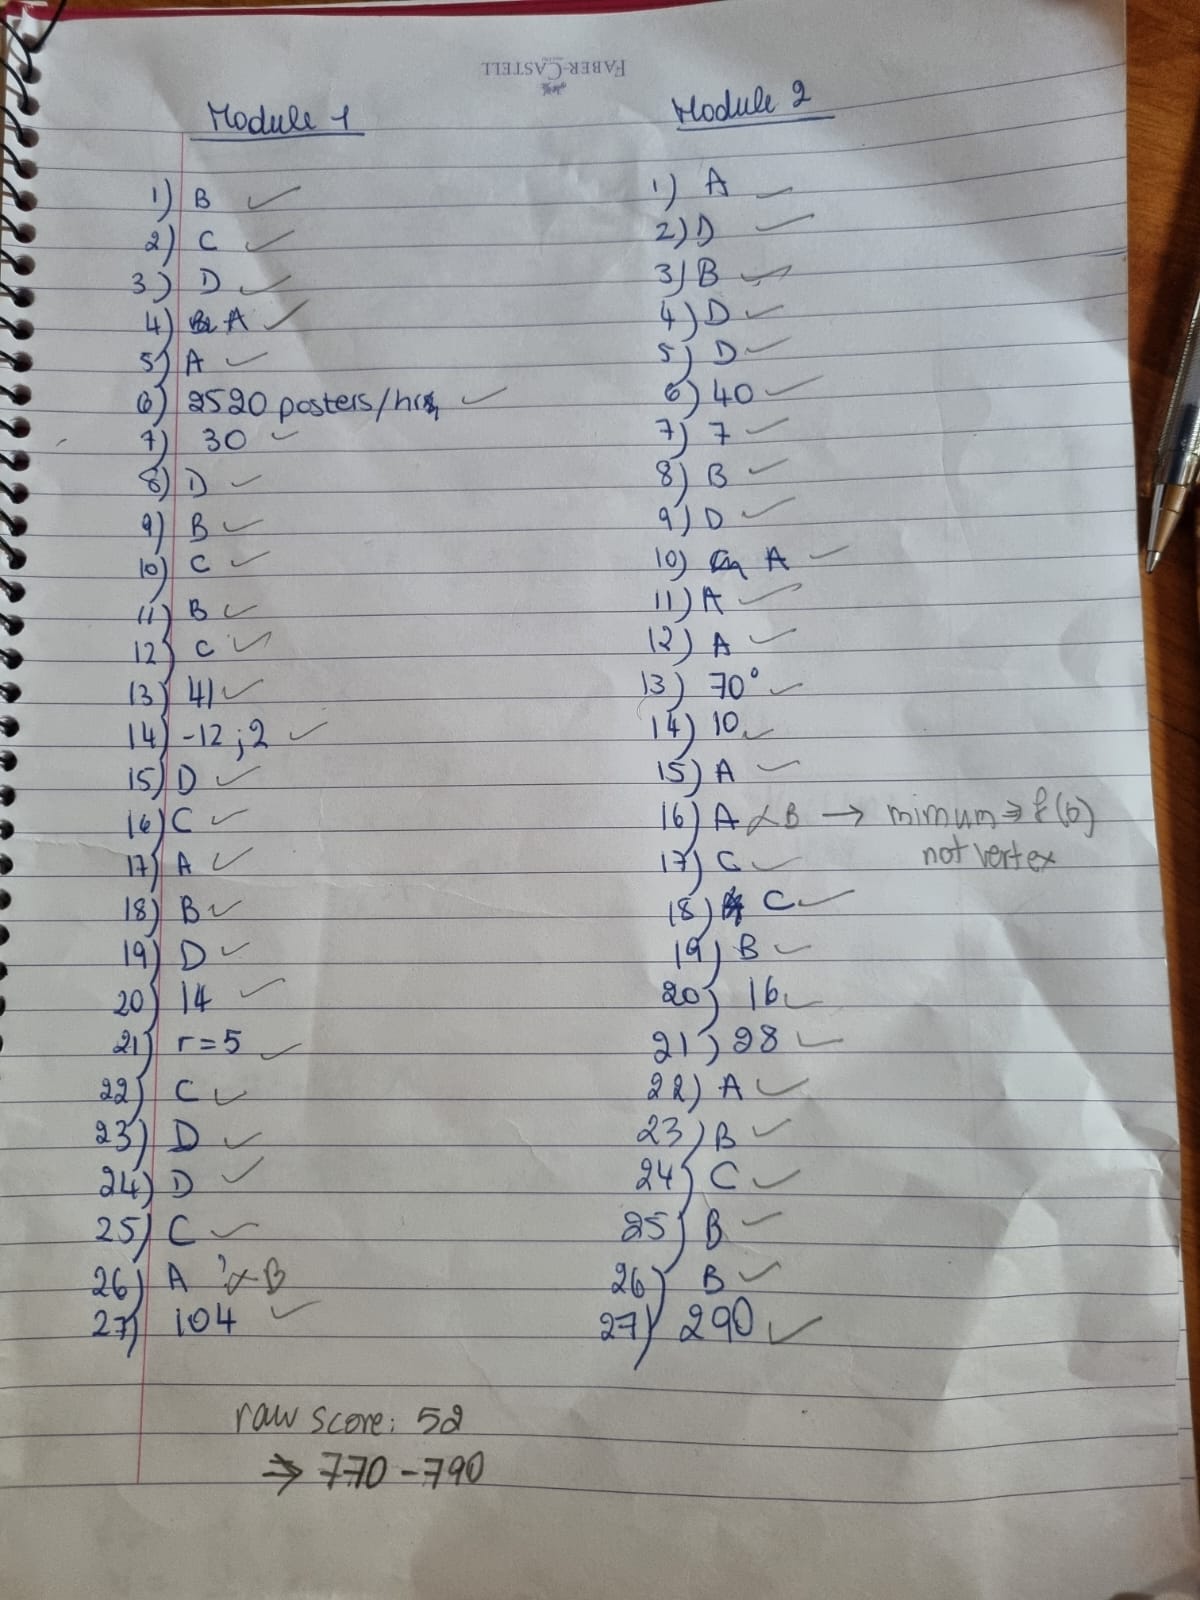 FABER-CASTELL
Module 1
1) B
2) C
3) D
4) A
5) A
6) 2520 posters/hr
7) 30
8) D
9) B
10) C
11) B
12) C
13) 41
14) -12 ; 2
15) D
16) C
17) A
18) B
19) D
20) 14
21) r = 5
22) C
23) D
24) D
25) C
26) A x B
27) 104
raw score: 52
⇒ 770 - 790
Module 2
1) A
2) D
3) B
4) D
5) D
6) 40
7) 7
8) B
9) D
10) A
11) A
12) A
13) 70°
14) 10
15) A
16) A x B → mimum ⇒ f(6)
not vertex
17) C
18) C
19) B
20) 16
21) 28
22) A
23) B
24) C
25) B
26) B
27) 290